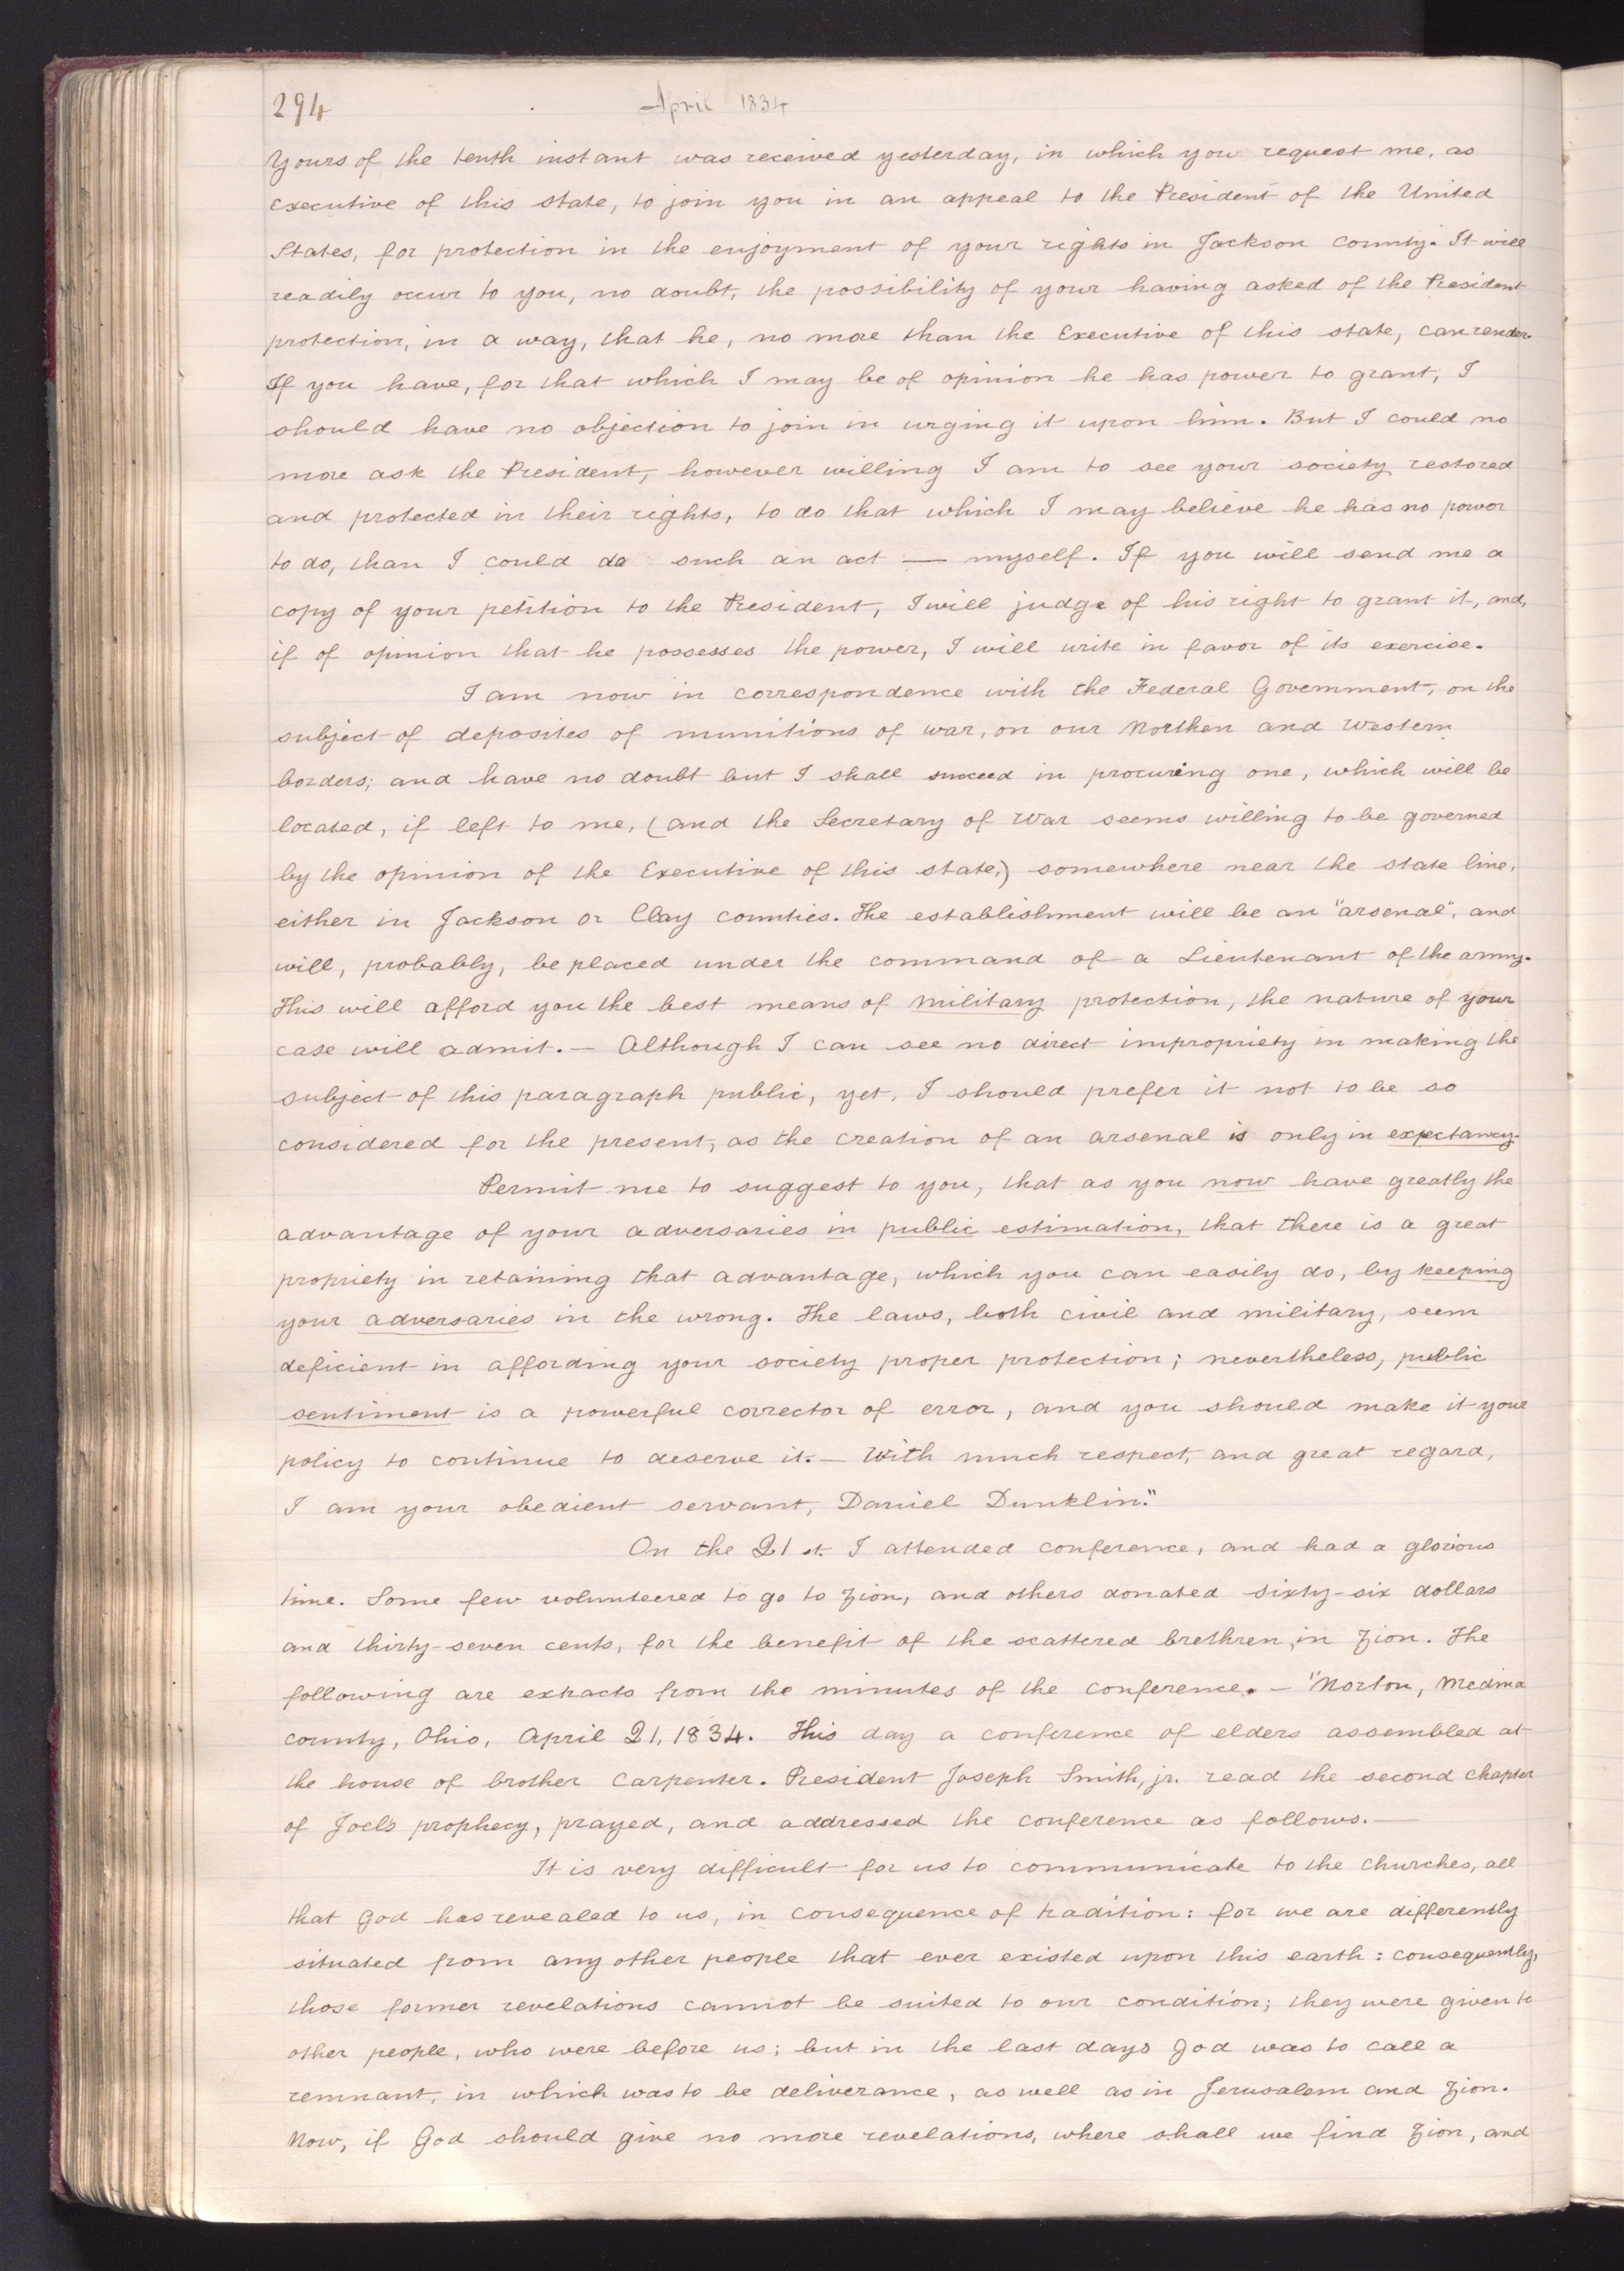 294
April 1834
Yours of the tenth instant was received yesterday, in which you request me, as
executive of this state, to join you in an appeal to the President of the United
States, for protection in the enjoyment of your rights in Jackson county. It will
readily occur to you, no doubt, the possibility of your having asked of the President
protection, in a way, that he, no more than the Executive of this state, can render.
If you have, for that which I may be of opinion he has power to grant, I
should have no objection to join in urging it upon him. But I could no
more ask the President, however willing I am to see your society restored
and protected in their rights, to do that which I may believe he has no power
to do, than I could do such an act — myself. If you will send me a
copy of your petition to the President, I will judge of his right to grant it, and,
if of opinion that he possesses the power, I will write in favor of its exercise.
I am now in correspondence with the Federal Government, on the
subject of deposites of munitions of war, on our Northen and Western
borders; and have no doubt but I shall succeed in procuring one, which will be
located, if left to me, (and the Secretary of War seems willing to be governed
by the opinion of the Executive of this state,) somewhere near the state line,
either in Jackson or Clay counties. The establishment will be an "arsenal", and
will, probably, be placed under the command of a Lieutenant of the army.
This will afford you the best means of military protection, the nature of your
case will admit.— Although I can see no direct impropriety in making the
subject of this paragraph public, yet, I should prefer it not to be so
considered for the present, as the creation of an arsenal is only in expectancy.
Permit me to suggest to you, that as you now have greatly the
advantage of your adversaries in public estimation, that there is a great
propriety in retaining that advantage, which you can easily do, by keeping
your adversaries in the wrong. The laws, both civil and military, seem
deficient in affording your society proper protection; nevertheless, public
sentiment is a powerful corrector of error, and you should make it your
policy to continue to deserve it.— With much respect, and great regard,
I am your obedient servant, Daniel Dunklin."
On the 21st. I attended conference, and had a glorious
time. Some few volunteered to go to Zion, and others donated sixty-six dollars
and thirty-seven cents, for the benefit of the scattered brethren, in Zion. The
following are extracts from the minutes of the conference.— "Norton, Medina
county, Ohio, April 21, 1834. This day a conference of elders assembled at
the house of brother Carpenter. President Joseph Smith, jr. read the second chapter
of Joel's prophecy, prayed, and addressed the conference as follows.—
It is very difficult for us to communicate to the churches, all
that God has revealed to us, in consequence of tradition: for we are differently
situated from any other people that ever existed upon this earth: consequently,
those former revelations cannot be suited to our condition; they were given to
other people, who were before us; but in the last days God was to call a
remnant, in which was to be deliverance, as well as in Jerusalem and Zion.
Now, if God should give no more revelations, where shall we find Zion, and